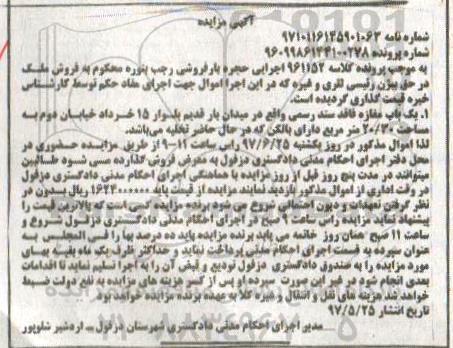 آگهی مزایده
شماره نامه ۹۷۱۰۱۱۶۱۴۵۹۰۱۰۶۳
شماره پرونده ۹۶۰۹۹۸۶۱۴۴۱۰۰۲۷۸
به موجب پرونده کلاسه ۹۶۱۱۵۲ اجرایی حجره بارفروشی رجب پنوره محکوم به فروش ملک
در حق بیژن رئیسی لقری و غیره که در این اجرا اموال جهت اجرای مفاد حکم توسط کارشناس
خبره قیمت گذاری گردیده است.
۱. یک باب مغازه فاقد سند رسمی واقع در میدان بار قدیم بلوار ۱۵ خرداد خیابان دوم به
مساحت ۲۰/۳۰ متر مربع دارای بالکن که در حال حاضر تخلیه می‌باشد.
لذا اموال مذکور در روز یکشنبه ۹۷/۶/۲۵ راس ساعت ۱۱-۹ از طریق مزایده حضوری در
محل دفتر اجرای احکام مدنی دادگستری دزفول به معرض فروش گذارده می شود طالبین
میتوانند در مدت پنج روز قبل از روز مزایده با هماهنگی اجرای احکام مدنی دادگستری دزفول
در وقت اداری از اموال مذکور بازدید نمایند مزایده از قیمت پایه ۱۶۲۴۰۰۰۰۰۰ ریال بدون در
نظر گرفتن تعهدات و دیون احتمالی شروع می شود برنده مزایده کسی است که بالاترین قیمت را
پیشنهاد نماید مزایده راس ساعت ۹ صبح در اجرای احکام مدنی دادگستری دزفول شروع و
ساعت ۱۱ صبح همان روز خاتمه می یابد برنده مزایده باید ده درصد بها را فی المجلس به
عنوان سپرده به قسمت اجرای احکام مدنی پرداخت نماید و حداکثر ظرف یک ماه بقیه بهای
مورد مزایده را به صندوق دادگستری دزفول تودیع و قبض آن را به اجرا تسلیم نماید تا اقدامات
بعدی انجام شود در غیر این صورت سپرده او پس از کسر هزینه های مزایده به نفع دولت ضبط
خواهد شد هزینه های نقل و انتقال و غیره کلا به عهده برنده مزایده خواهد بود
تاریخ انتشار ۹۷/۵/۲۵
مدیر اجرای احکام مدنی دادگستری شهرستان دزفول – اردشیر شلوپور